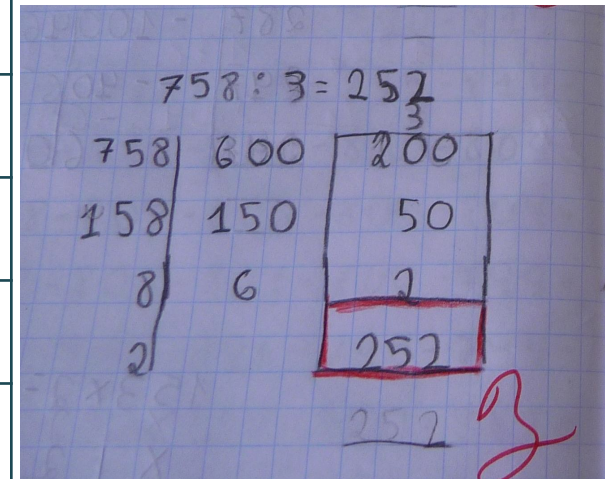 758 : 3 = 252
3
758 600 200
158 150 50
8 6 2
2 252
252